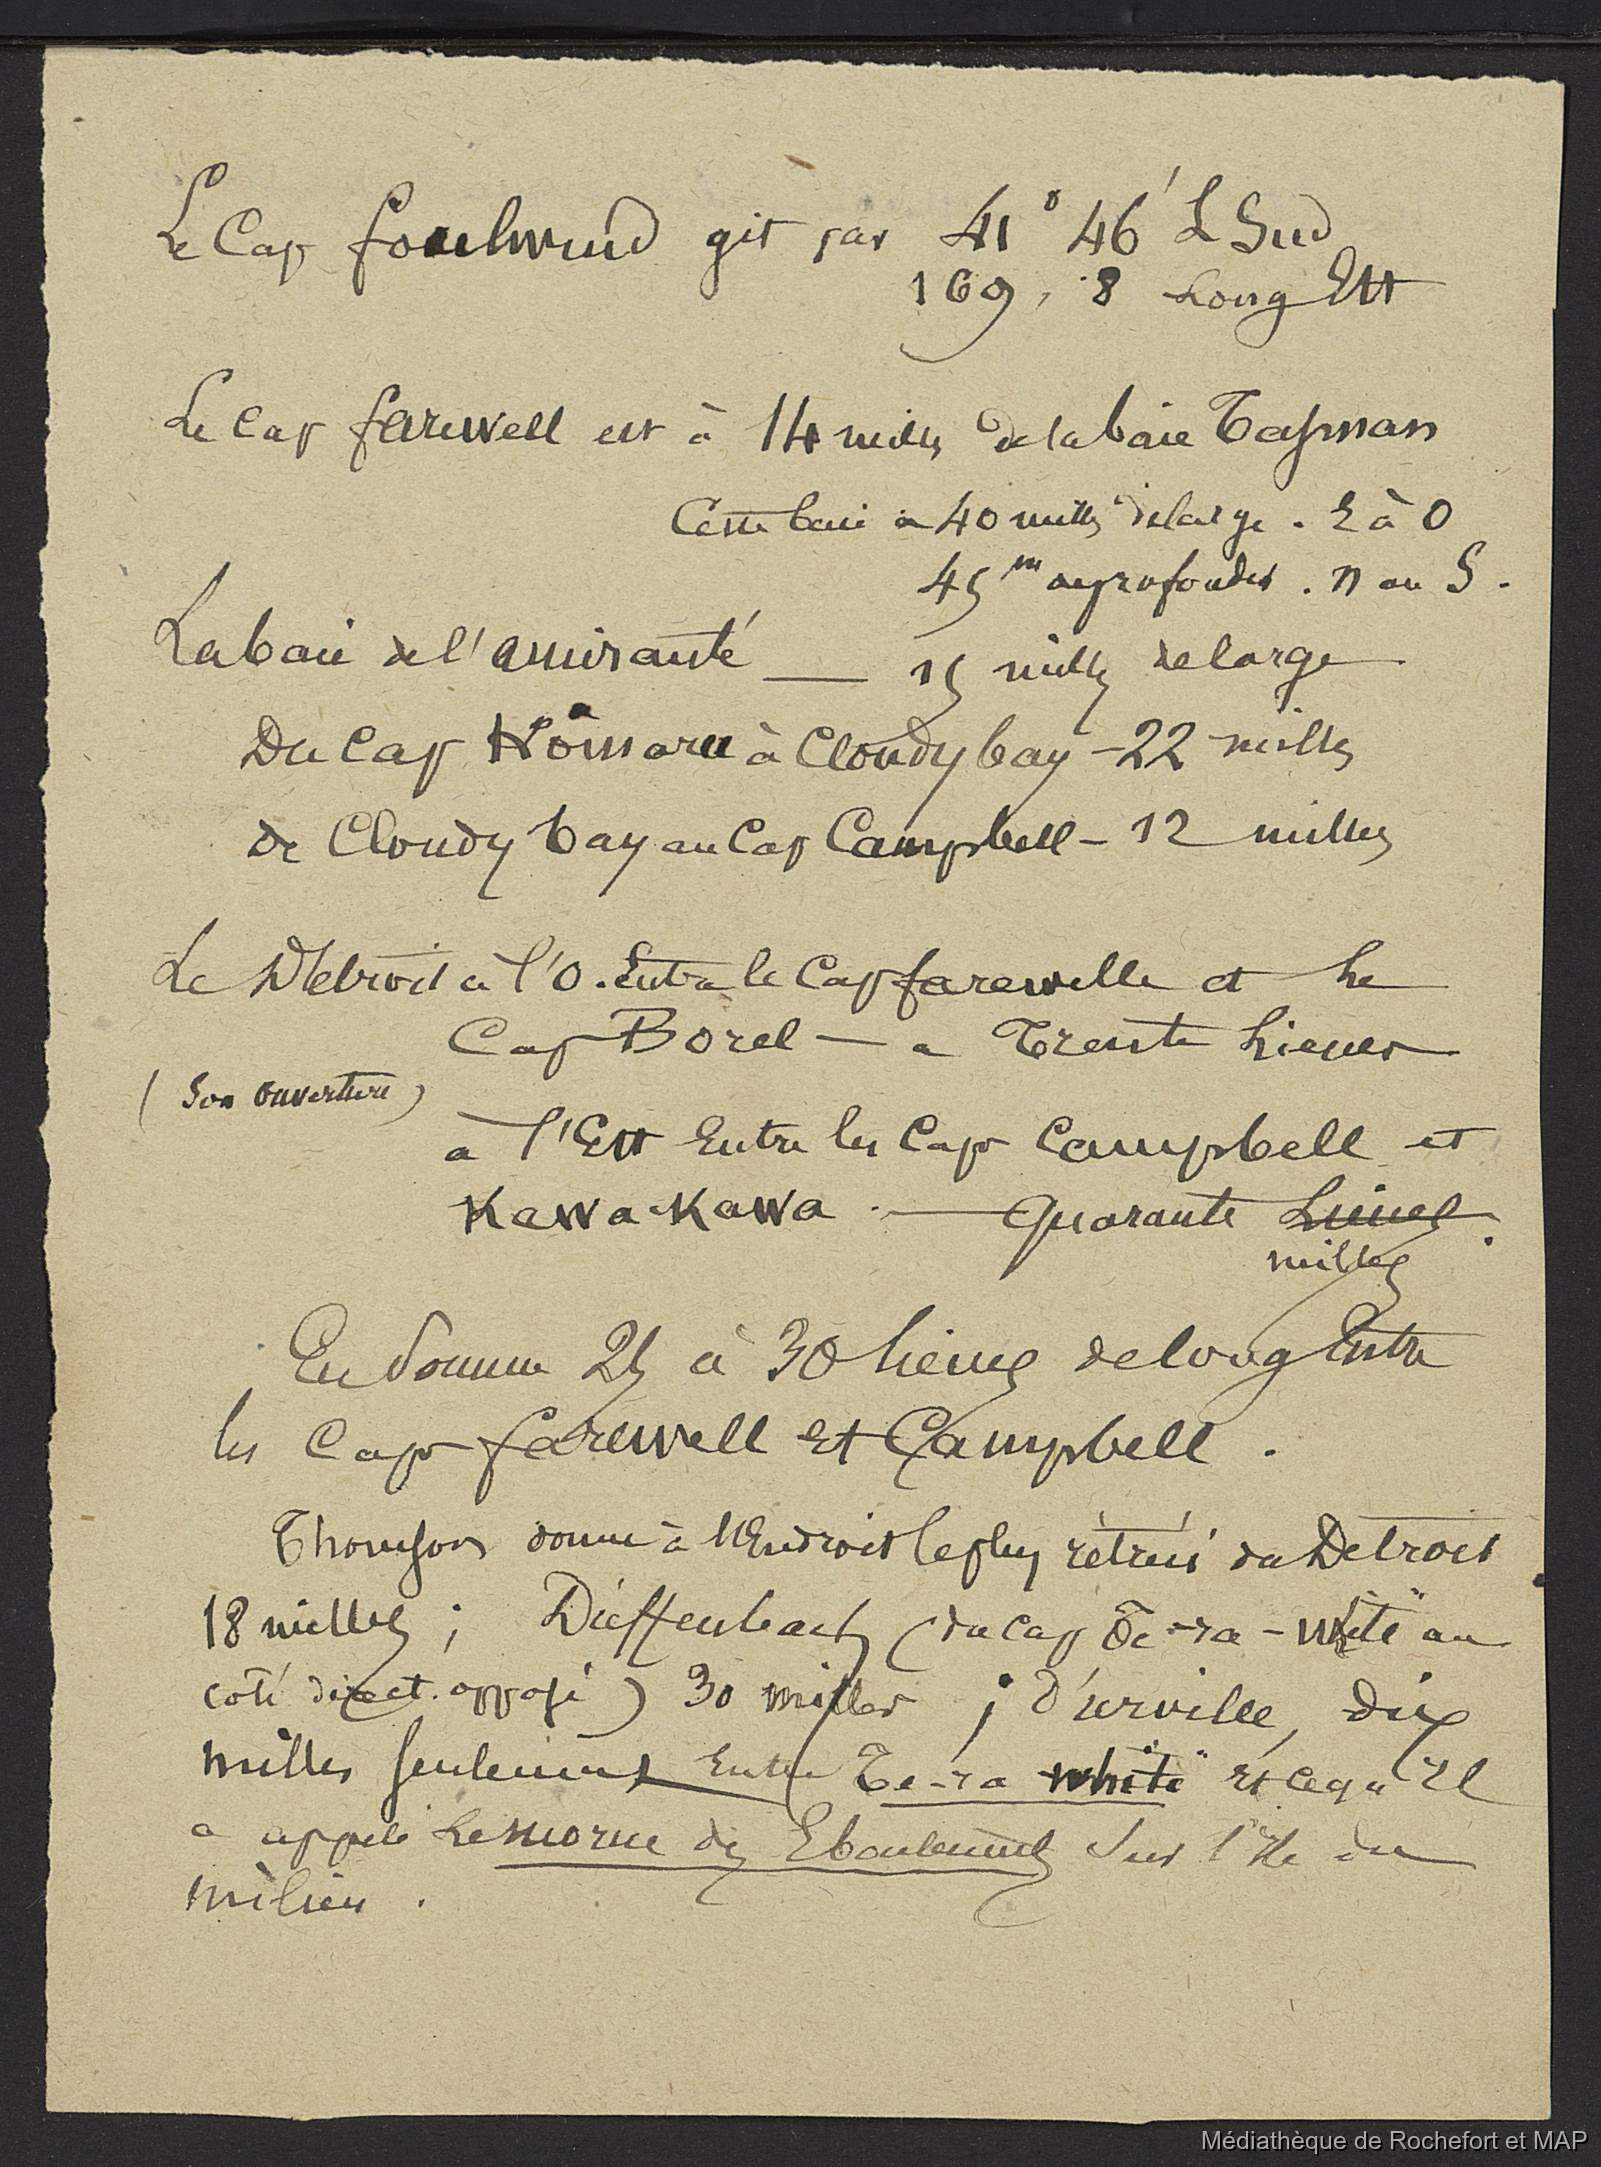 Le Cap foulwind git par 41° 46' L Sud
169, 8 Long Est
Le Cap farewell est à 14 milles de la baie Tasman
Cette baie a 40 milles de large. E à O
45 m profondes. n au S.
La baie de l'amirauté — 15 milles de large
Du Cap Kòmaru à Cloudy bay - 22 milles
de Cloudy bay au Cap Campbell - 12 milles
Le Détroit à l'O. Entre le Cap farewelle et Le
Cap Borel — a Trente Lieues
(Son ouverture)
à l'Est Entre les Caps Campbell et
Kawa-Kawa. — Quarante Lieues.
milles
En Somme 25 à 30 lieues de long Entre
les Caps farewell et Campbell.
Thomson donne à l'Endroit le plus rétréci du Detroit
18 milles; Dieffenbach (du cap Te-ra-witë au
coté direct. opposé) 30 milles; d'urville, dix
milles seulement Entre Té-ra whitë et ce qu'il
a appelé Le morne des Eboulements Sur l'Ile du
milieu.
Médiathèque de Rochefort et MAP